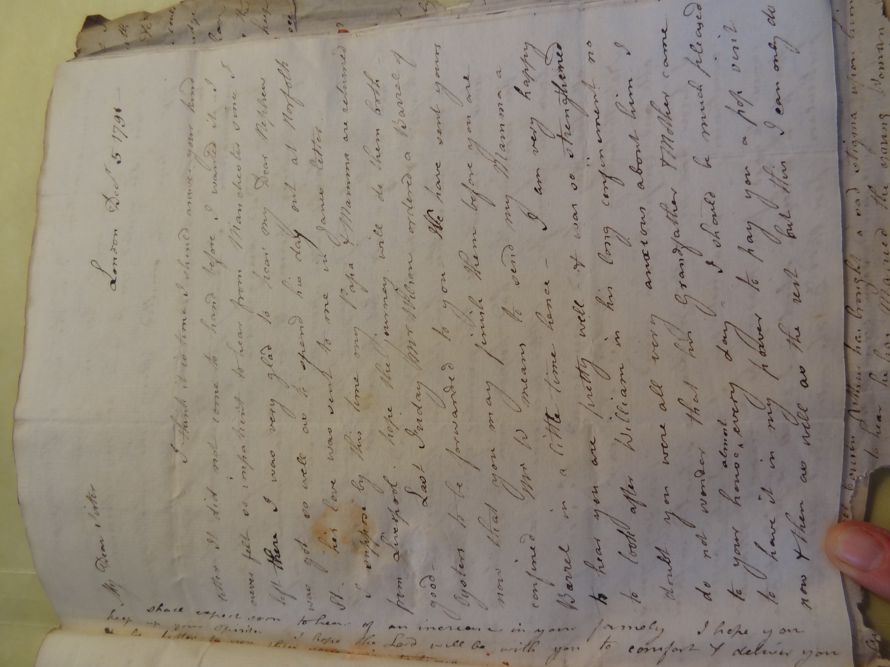 London Dec 5 1796
My Dear Sister
I think it is time I should answer your kind
letter It did not come to hand before I wanted it I
never felt so impatient to hear from Manchester since I
left there I was very glad to hear my Dear Pephus
was got so well as to spend his day out at Norfolk
St. his love was sent to me in Janes letter
I suppose by this time my Papa & Mamma are returned
from Liverpool I hope the journey will do them both
good - Last Friday Mr Wilson ordered a Barrel of
Oysters to be forwarded to you We have sent yours
now that you may finish them before you are
confined Mr W means to send my Mamma a
Barrel in a little time hence - I am very happy
to hear you are pretty well & was so strengthened
to look after William in his long confinement no
doubt you were all very anxious about him I
do not wonder that his Grandfather & Mother came
to your house almost every day - I should be much pleased
to have it in my power to pay you a pop visit
now & then as well as the rest but this I can only do
shall expect soon to hear of an increase in your family I hope you
keep up your spirits I hope the Lord will be with you to comfort & deliver you